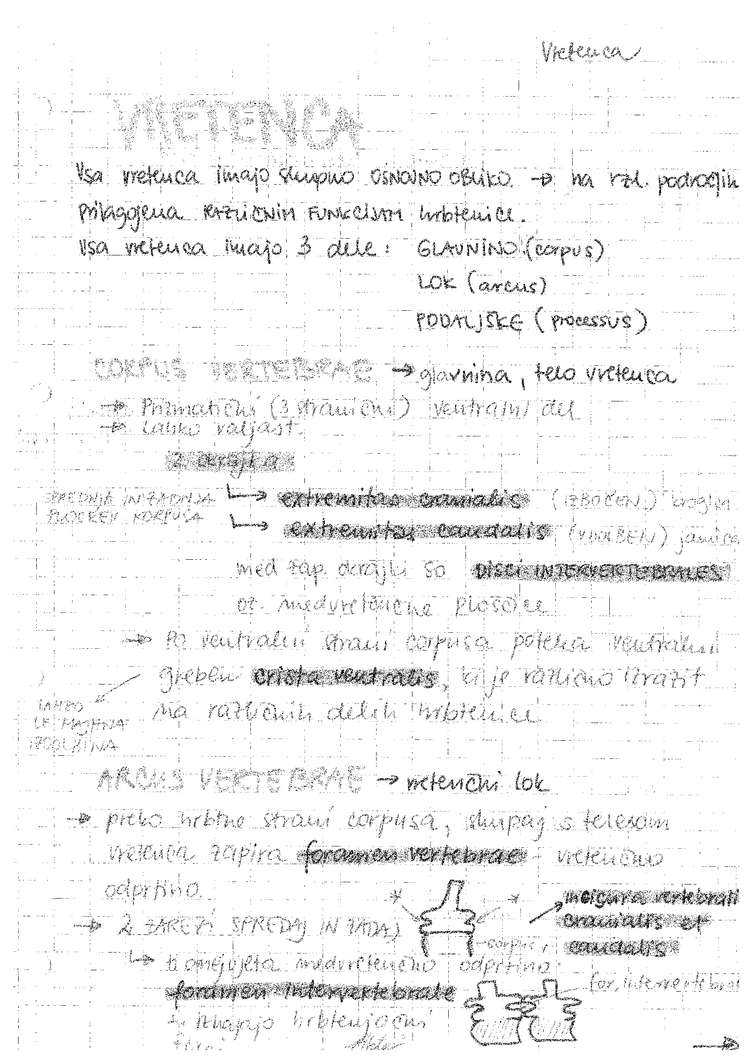 Vretenca
VRETENCA
Vsa vretenca imajo skupno OSNOVNO OBLIKO → na rzl. področjih
prilagojena RAZLIČNIM FUNKCIJAM hrbtenice.
Vsa vretenca imajo 3 dele: GLAVNINO (corpus)
LOK (arcus)
PODALJŠKE (processus)
CORPUS VERTEBRAE → glavnina, telo vretenca
→ Prizmatični (3 stranični) ventralni del
→ Lahko valjast.
2 okrajka:
SPREDNJA IN ZADNJA
PLOSKEV KORPUSA
↳ extremitas cranialis (IZBOČEN)
↳ extremitas caudalis (VBOČEN) jamica
med zap. okrajki so DISCI INTERVERTEBRALES
oz. medvretenčne ploščice
→ Po ventralni strani corpusa poteka ventralni
greben crista ventralis, ki je različno izrazit
na različnih delih hrbtenice
LAHKO
LE MAJHNA
IZBOKLINA
ARCUS VERTEBRAE → vretenčni lok
→ preko hrbtne strani corpusa, skupaj s telesom
vretenca zapira foramen vertebrae - vretenčno
odprtino.
→ 2 ZAREZI SPREDAJ IN ZADAJ
* *
corpus
incisura vertebrali
cranialis et
caudalis
↳ omejujeta medvretenčno odprtino
foramen intervertebrale
for. intervertebral
→ izhajajo hrbtenjačni
živci
→